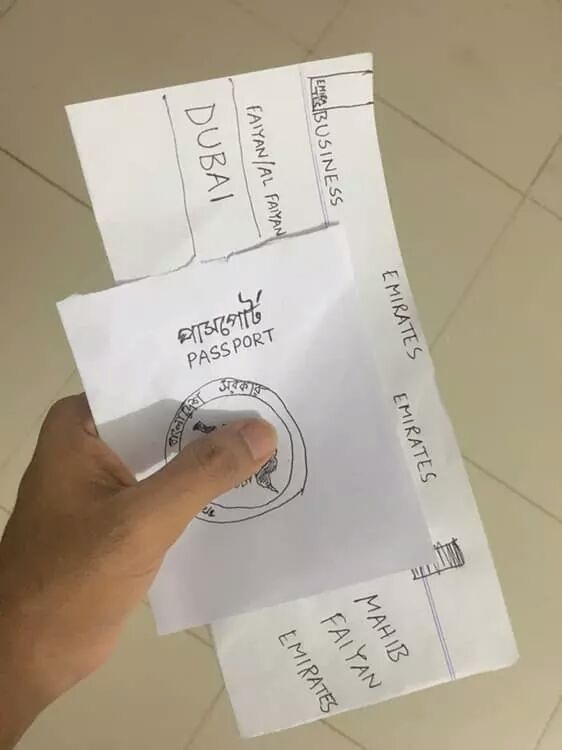 EMIRATES
BUSINESS
FAIYAN/AL FAIYAN
DUBAI
EMIRATES
EMIRATES
পাসপোর্ট
PASSPORT
বাংলাদেশ সরকার
MAHIB
FAIYAN
EMIRATES